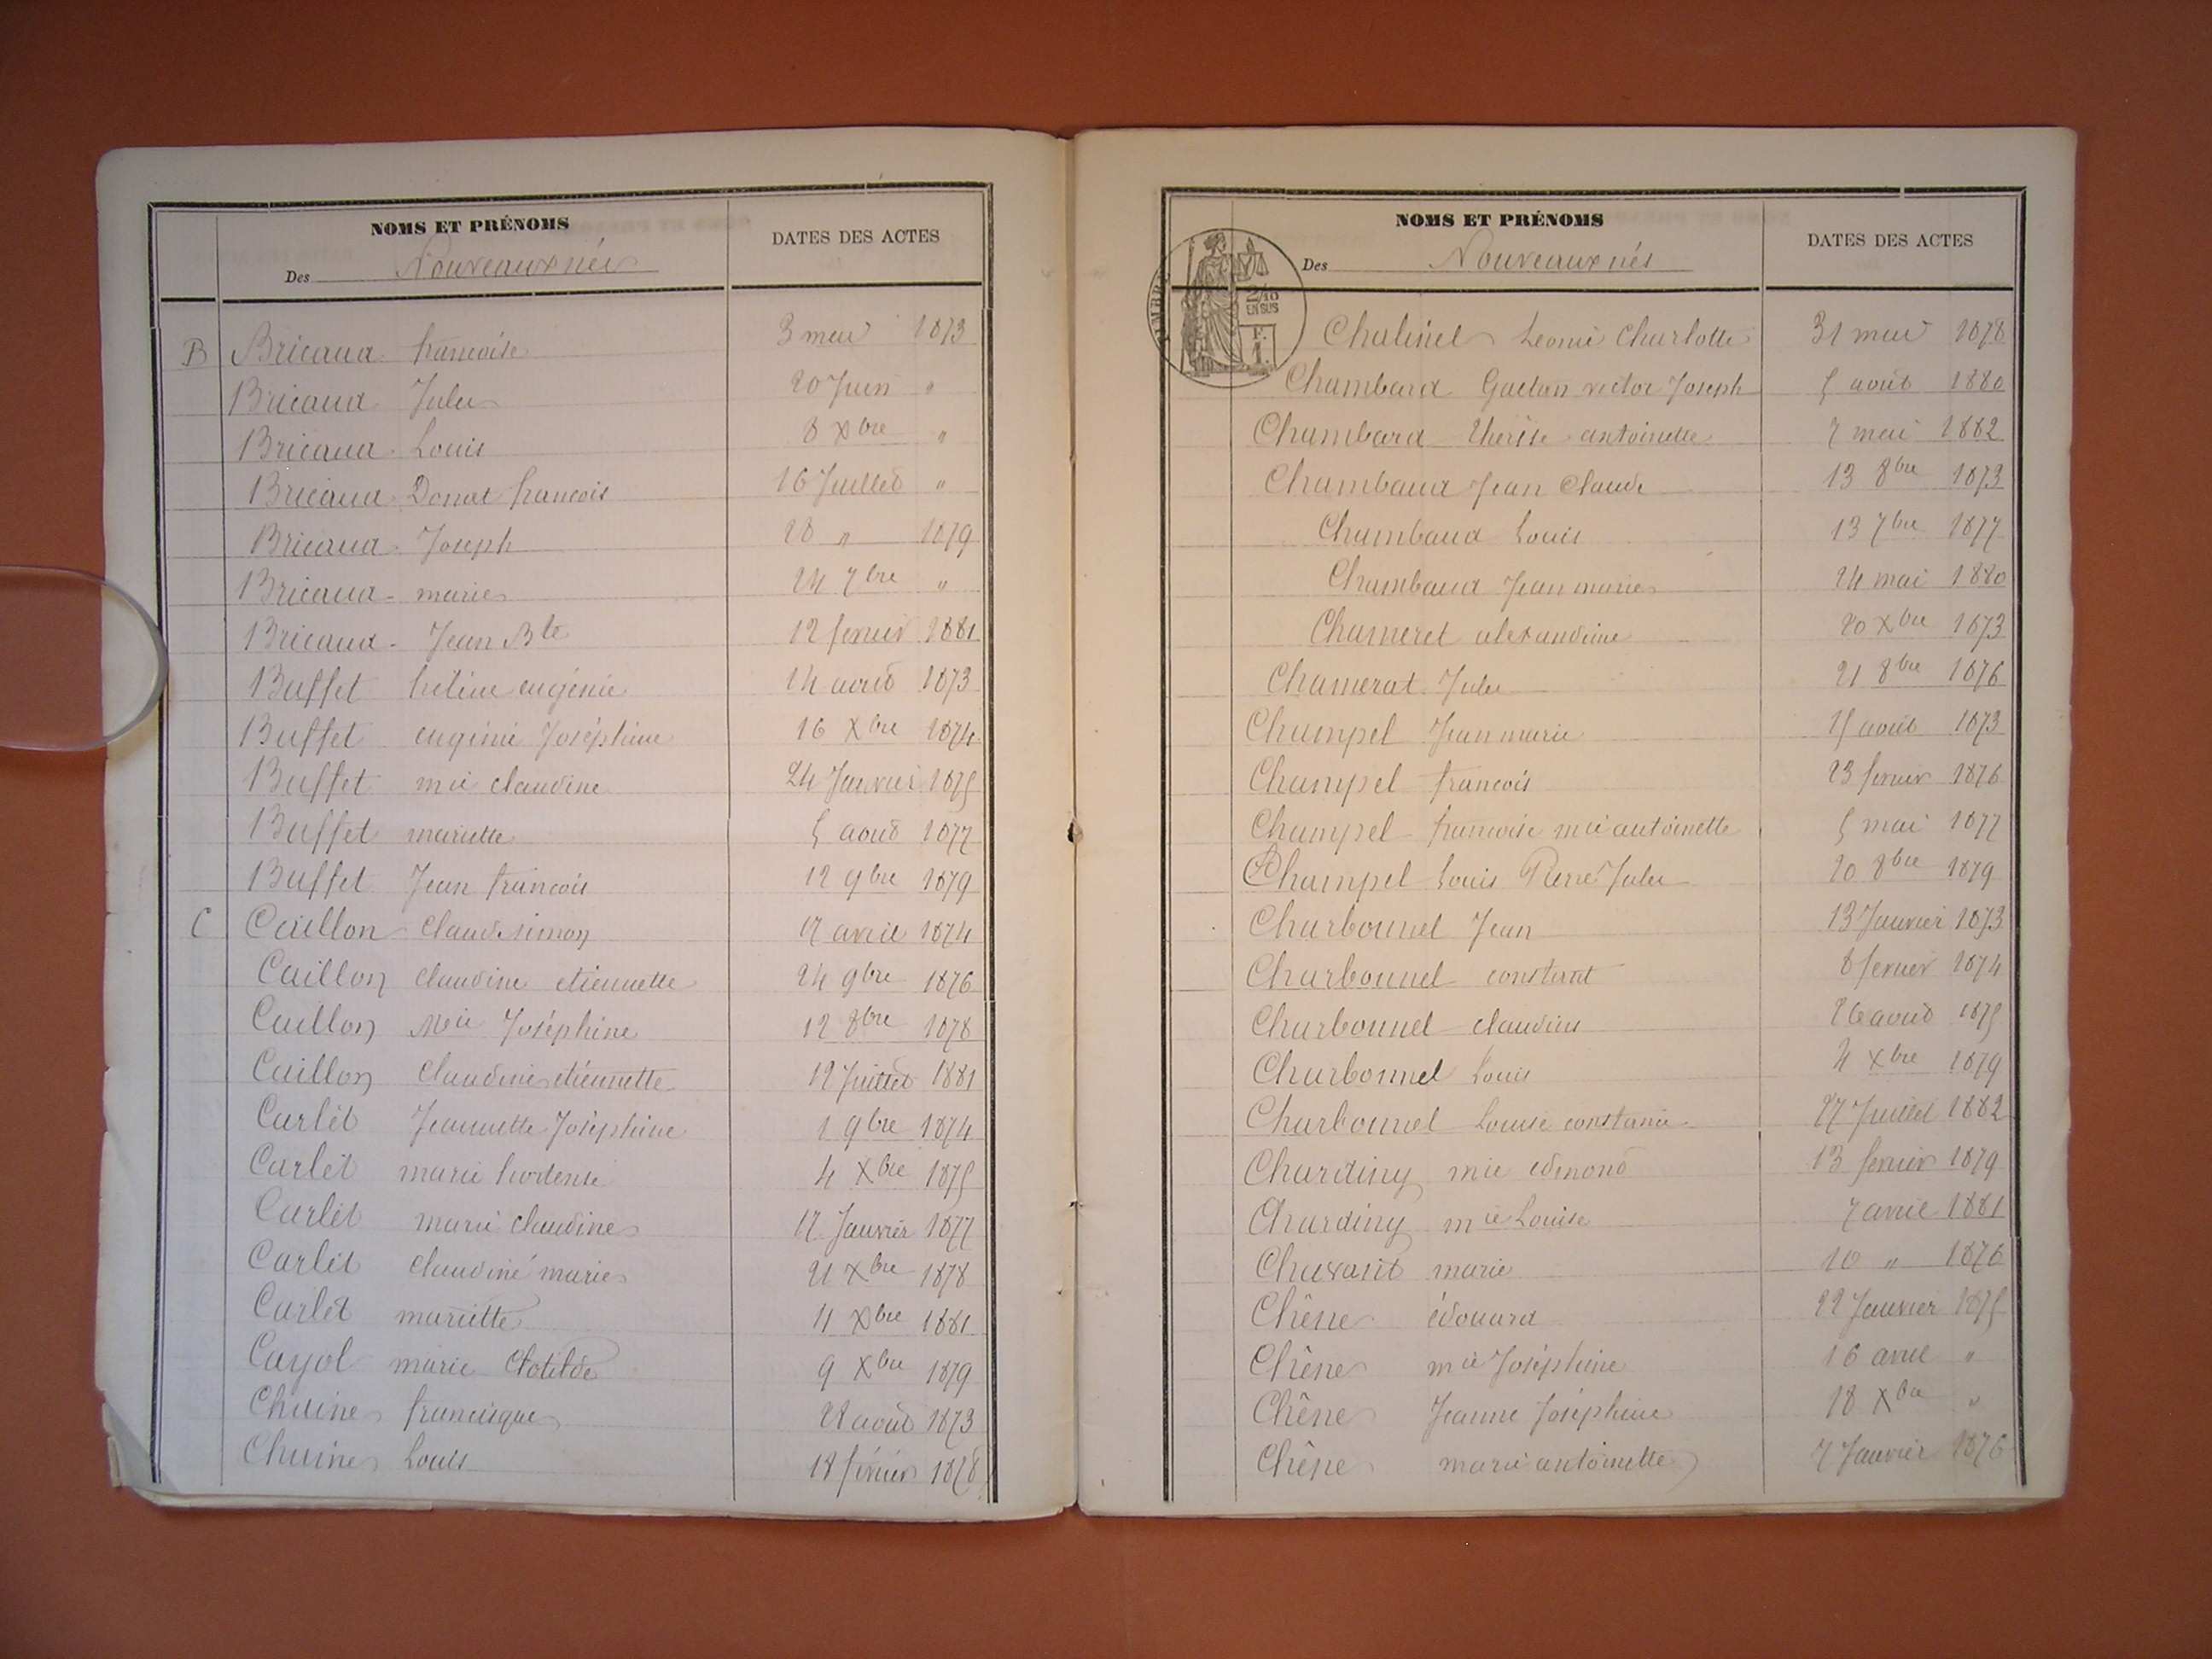 NOMS ET PRÉNOMS
DATES DES ACTES
Des Nouveaux nés
B Bricaud françoise 3 mai 1873
Bricaud Jules 20 Juin "
Bricaud Louis 8 Xbre "
Bricaud Donat francois 16 Juillet "
Bricaud Joseph 28 " 1879
Bricaud marie 24 7bre "
Bricaud Jean Bte 12 fevrier 1881
Buffet hélène eugénie 14 aout 1873
Buffet eugénie Joséphine 16 Xbre 1874
Buffet mie claudine 24 Janvier 1875
Buffet mariette 5 aout 1877
Buffet Jean francois 12 9bre 1879
C Caillon Claude simon 17 avril 1874
Caillon claudine etiennette 24 9bre 1876
Caillon Mie Joséphine 12 8bre 1878
Caillon Claudine etiennette 12 Juillet 1881
Carlet Jeannette Joséphine 1 9bre 1874
Carlet marie hortense 4 Xbre 1875
Carlet marie claudine 17 Janvier 1877
Carlet claudine marie 21 Xbre 1878
Carlet mariette 11 Xbre 1881
Cayol marie Clotilde 9 Xbre 1879
Chaine francisque 28 août 1873
Chaine Louis 18 février 1878
NOMS ET PRÉNOMS
DATES DES ACTES
Des Nouveaux nés
TIMBRE
2/10
EN SUS
F.
1.
Chalinel Leonie Charlotte 31 mai 1878
Chambard Gaetan victor Joseph 5 août 1880
Chambard thérèse antoinette 7 mai 1882
Chambaud Jean Claude 13 8bre 1873
Chambaud Louis 13 7bre 1877
Chambaud Jean marie 24 mai 1880
Chameret alexandrine 20 Xbre 1873
Chamerat Jules 21 8bre 1876
Champel Jean marie 15 août 1873
Champel francois 23 fevrier 1876
Champel francoise mie antoinette 5 mai 1877
Champel Louis Pierre Jules 20 8bre 1879
Charbonnel Jean 13 Janvier 1873
Charbonnel constant 8 fevrier 1874
Charbonnel claudius 26 aout 1875
Charbonnel Louis 4 Xbre 1879
Charbonnel Louise constance 27 Juillet 1882
Chardiny mie edmond 13 fevrier 1879
Chardiny mie Louise 7 avril 1881
Chavant marie 10 " 1876
Chêne édouard 22 Janvier 1875
Chêne mie Joséphine 16 avril "
Chêne Jeanne Joséphine 18 Xbre "
Chêne marie antoinette 7 Janvier 1876